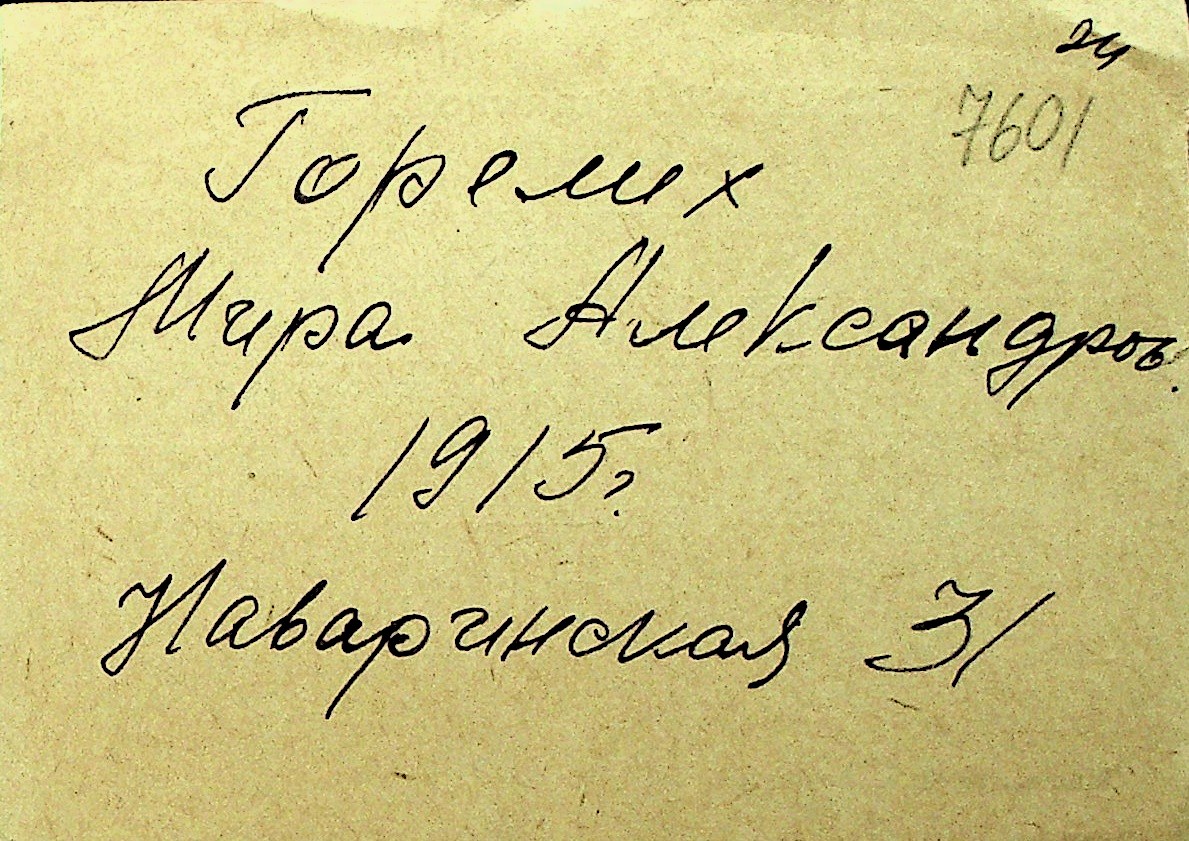 24
7601
Горелих
Мира Александров.
1915г
Наваринская 31